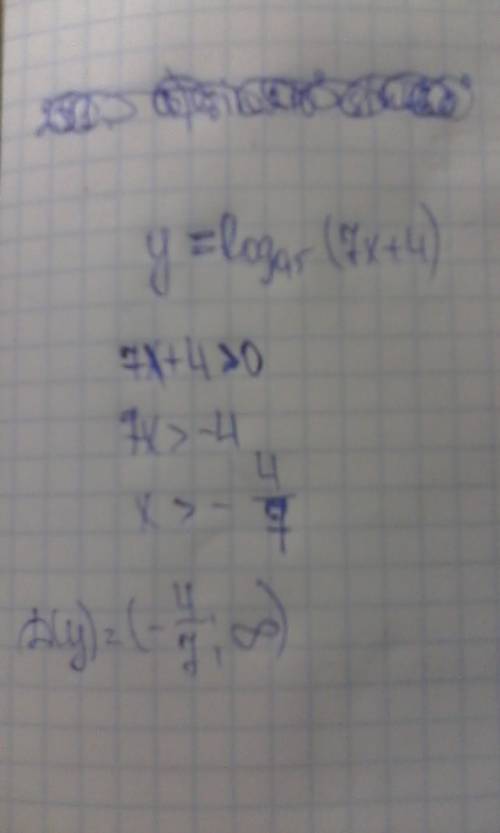 y = log₀,₅ (7x+4)
7x+4>0
7x > -4
x > - 4/7
D(y) = (- 4/7; ∞)